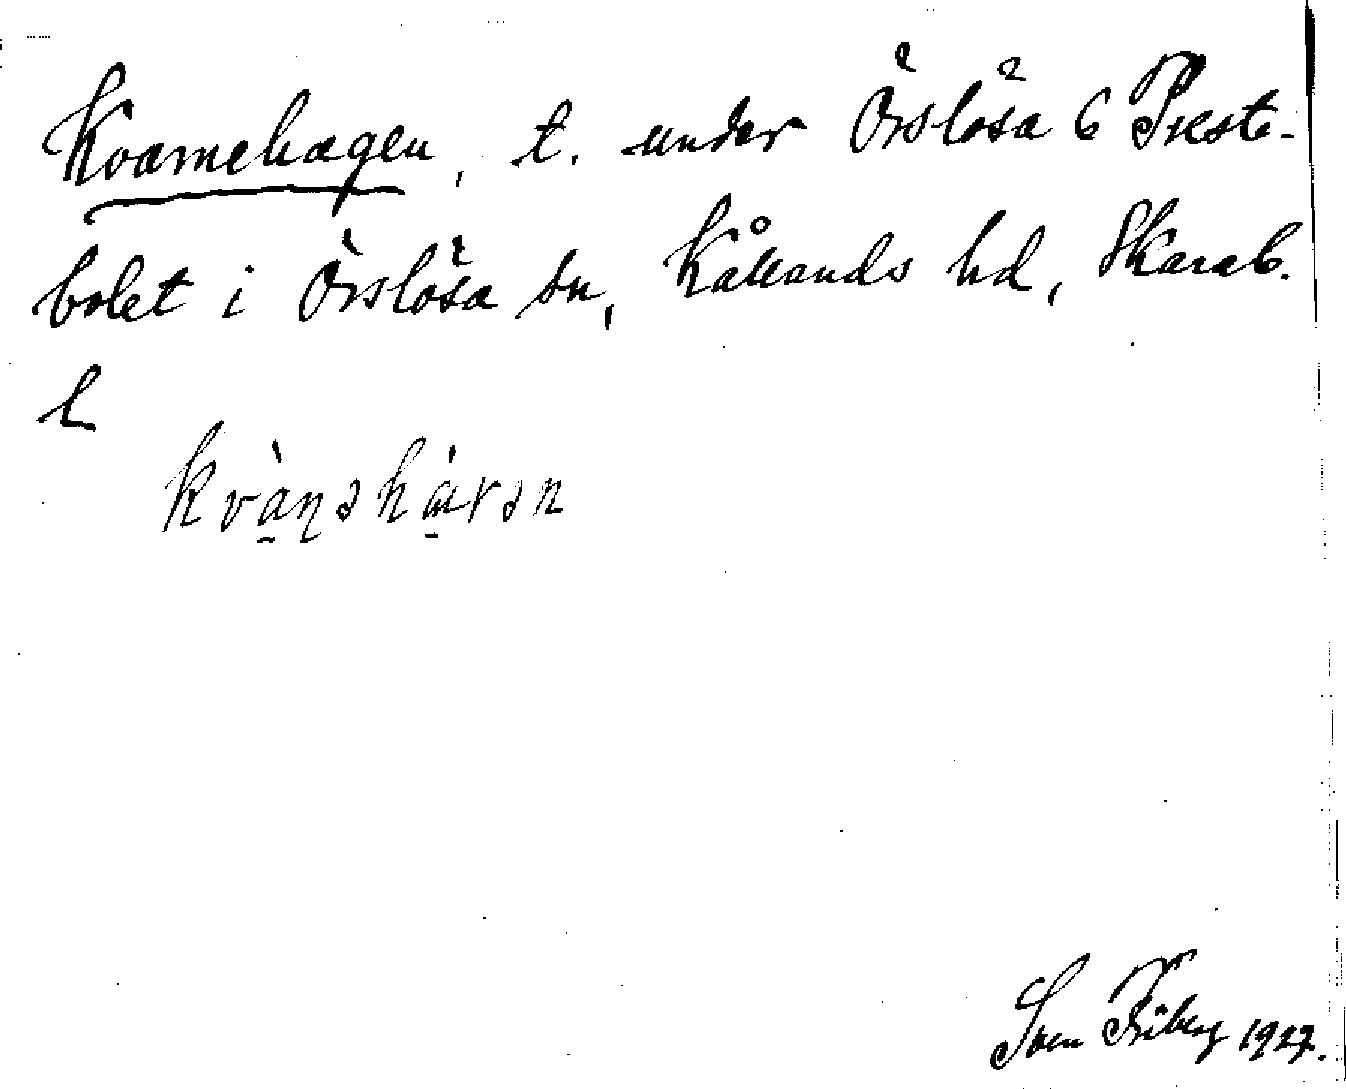 Kvarnehagen, t. under Örslösa 6 Preste-
bolet i Örslösa sn, Kållands hd, Skarab.
l
Sven Friberg 1927.